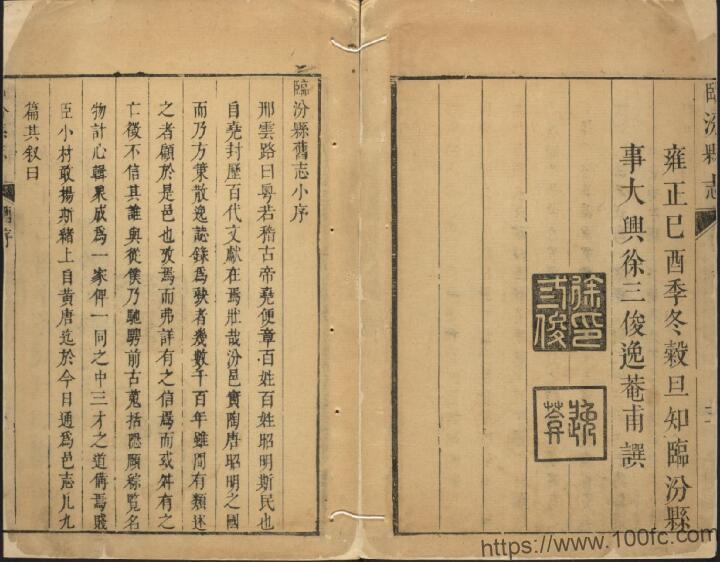 臨汾縣志
雍正己酉季冬穀旦知臨汾縣
事大興徐三俊逸菴甫譔
徐三俊印
逸菴
臨汾縣舊志小序
邢雲路曰粵若稽古帝堯便章百姓百姓昭明斯民也
自堯封歷百代文獻在焉壯哉汾邑實陶唐昭明之國
而乃方策散逸誌錄為
者幾數千百年雖間有類述
之者顧於是邑也攷焉而弗詳有之信焉而或舛有之
亡徵不信其誰與從僕乃馳騁前古蒐括隱顯綜覽名
物計心輯果成為一家俾一同之中三才之道備焉賤
臣小材敢揚斯緒上自黃唐迄於今日通為邑志凡九
篇其叙曰
舊序
https://www.100fc.com